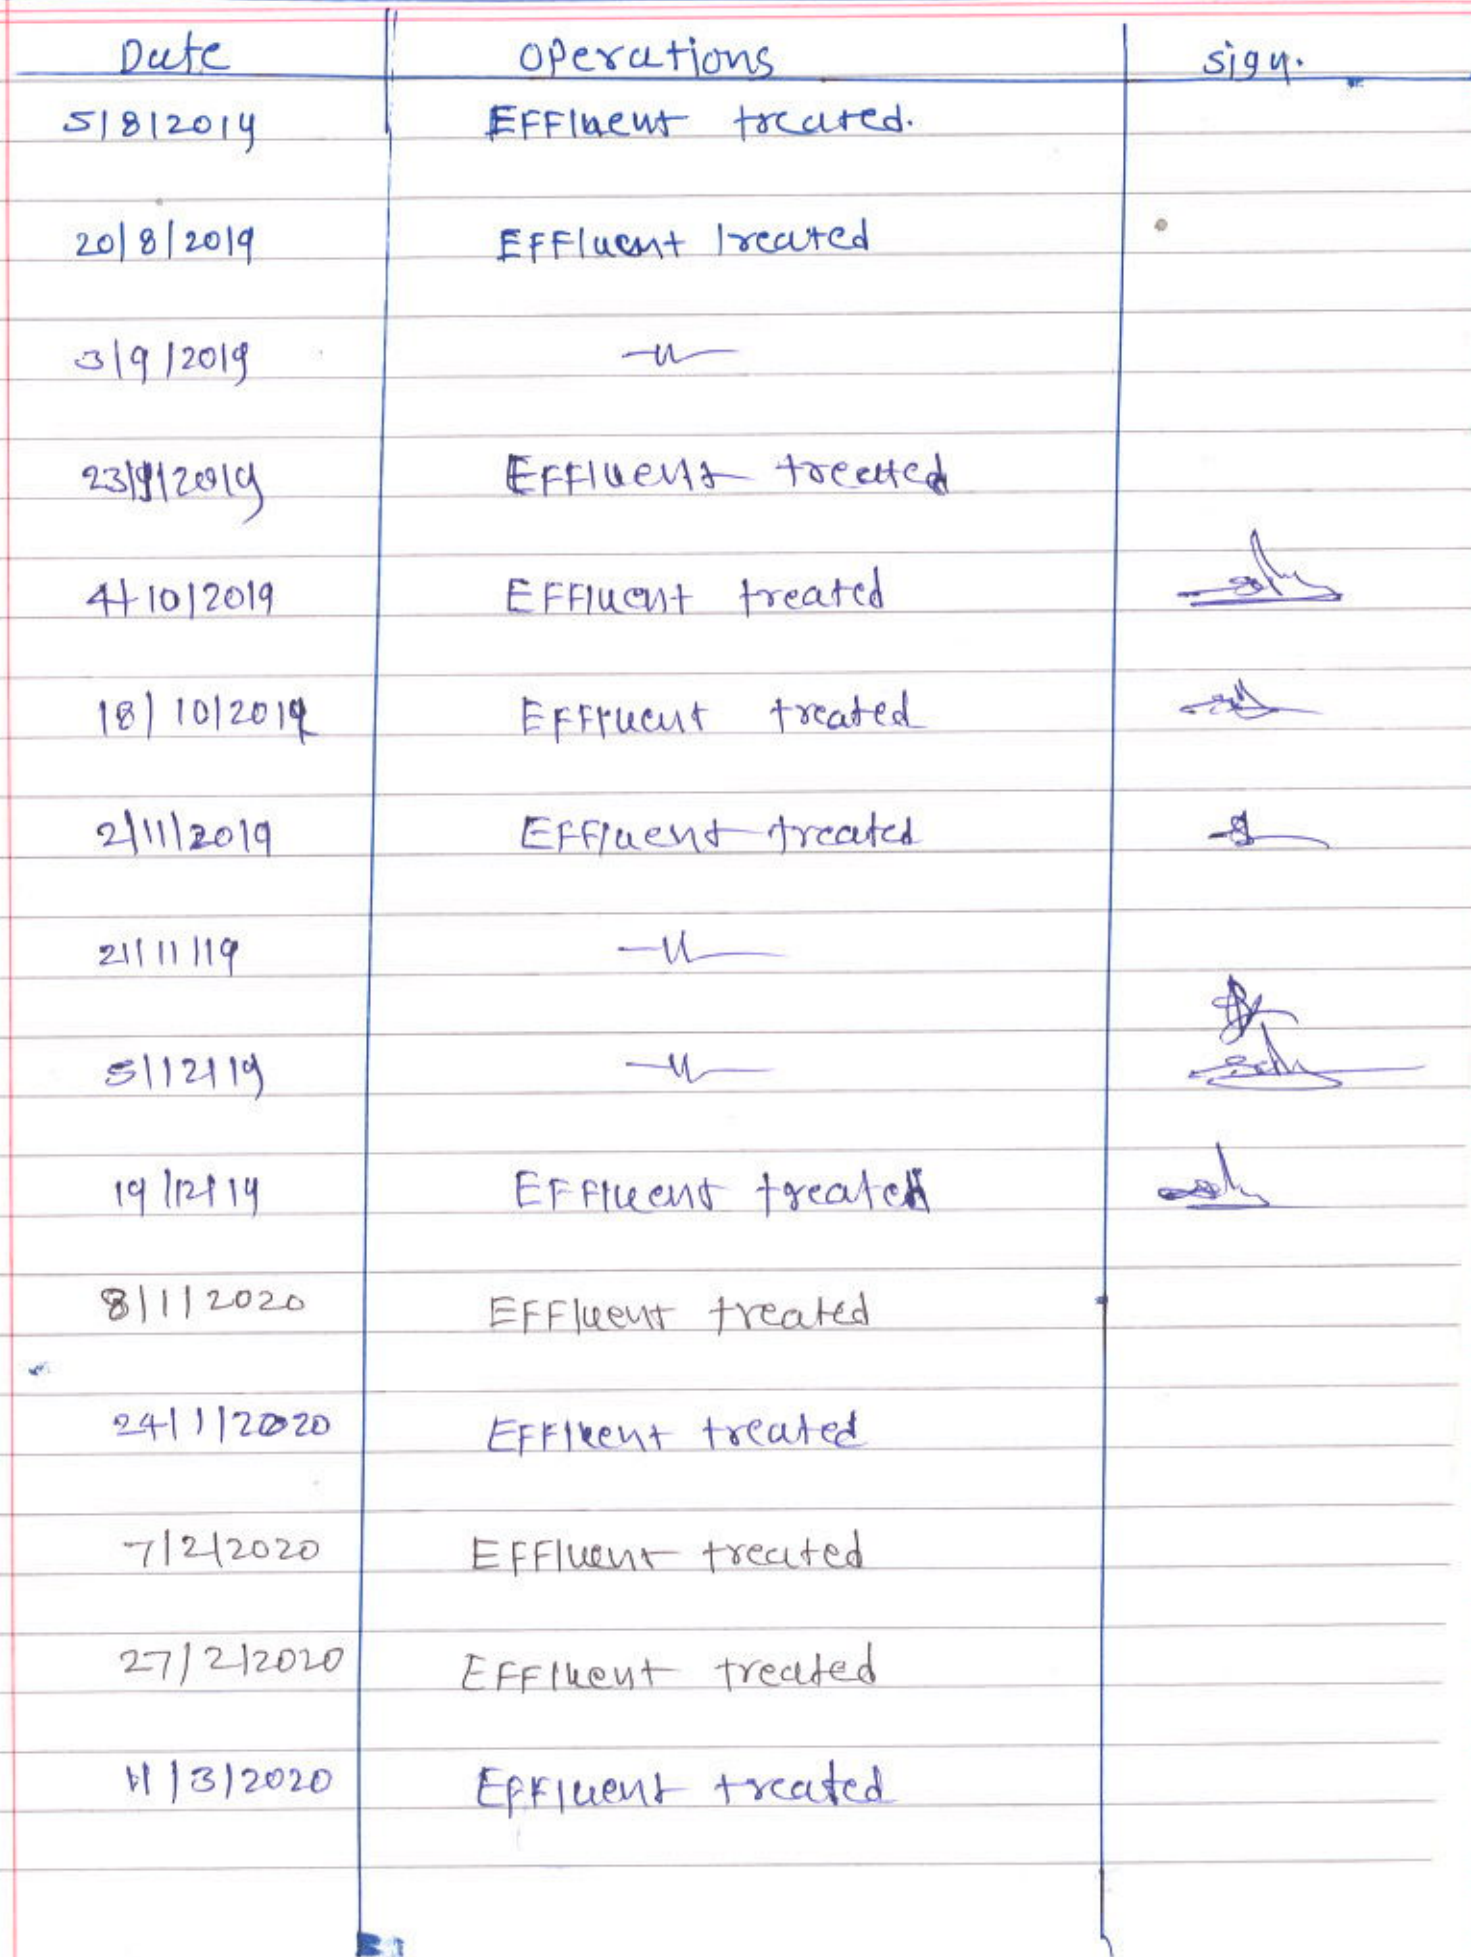 Date Operations sign.
5/8/2019 Effluent treated.
20/8/2019 Effluent treated
3/9/2019 —〃—
23/9/2019 Effluent treated
4/10/2019 Effluent treated
18/10/2019 Effluent treated
2/11/2019 Effluent treated
21/11/19 —〃—
5/12/19 —〃—
19/12/19 Effluent treated
8/1/2020 Effluent treated
24/1/2020 Effluent treated
7/2/2020 Effluent treated
27/2/2020 Effluent treated
11/3/2020 Effluent treated